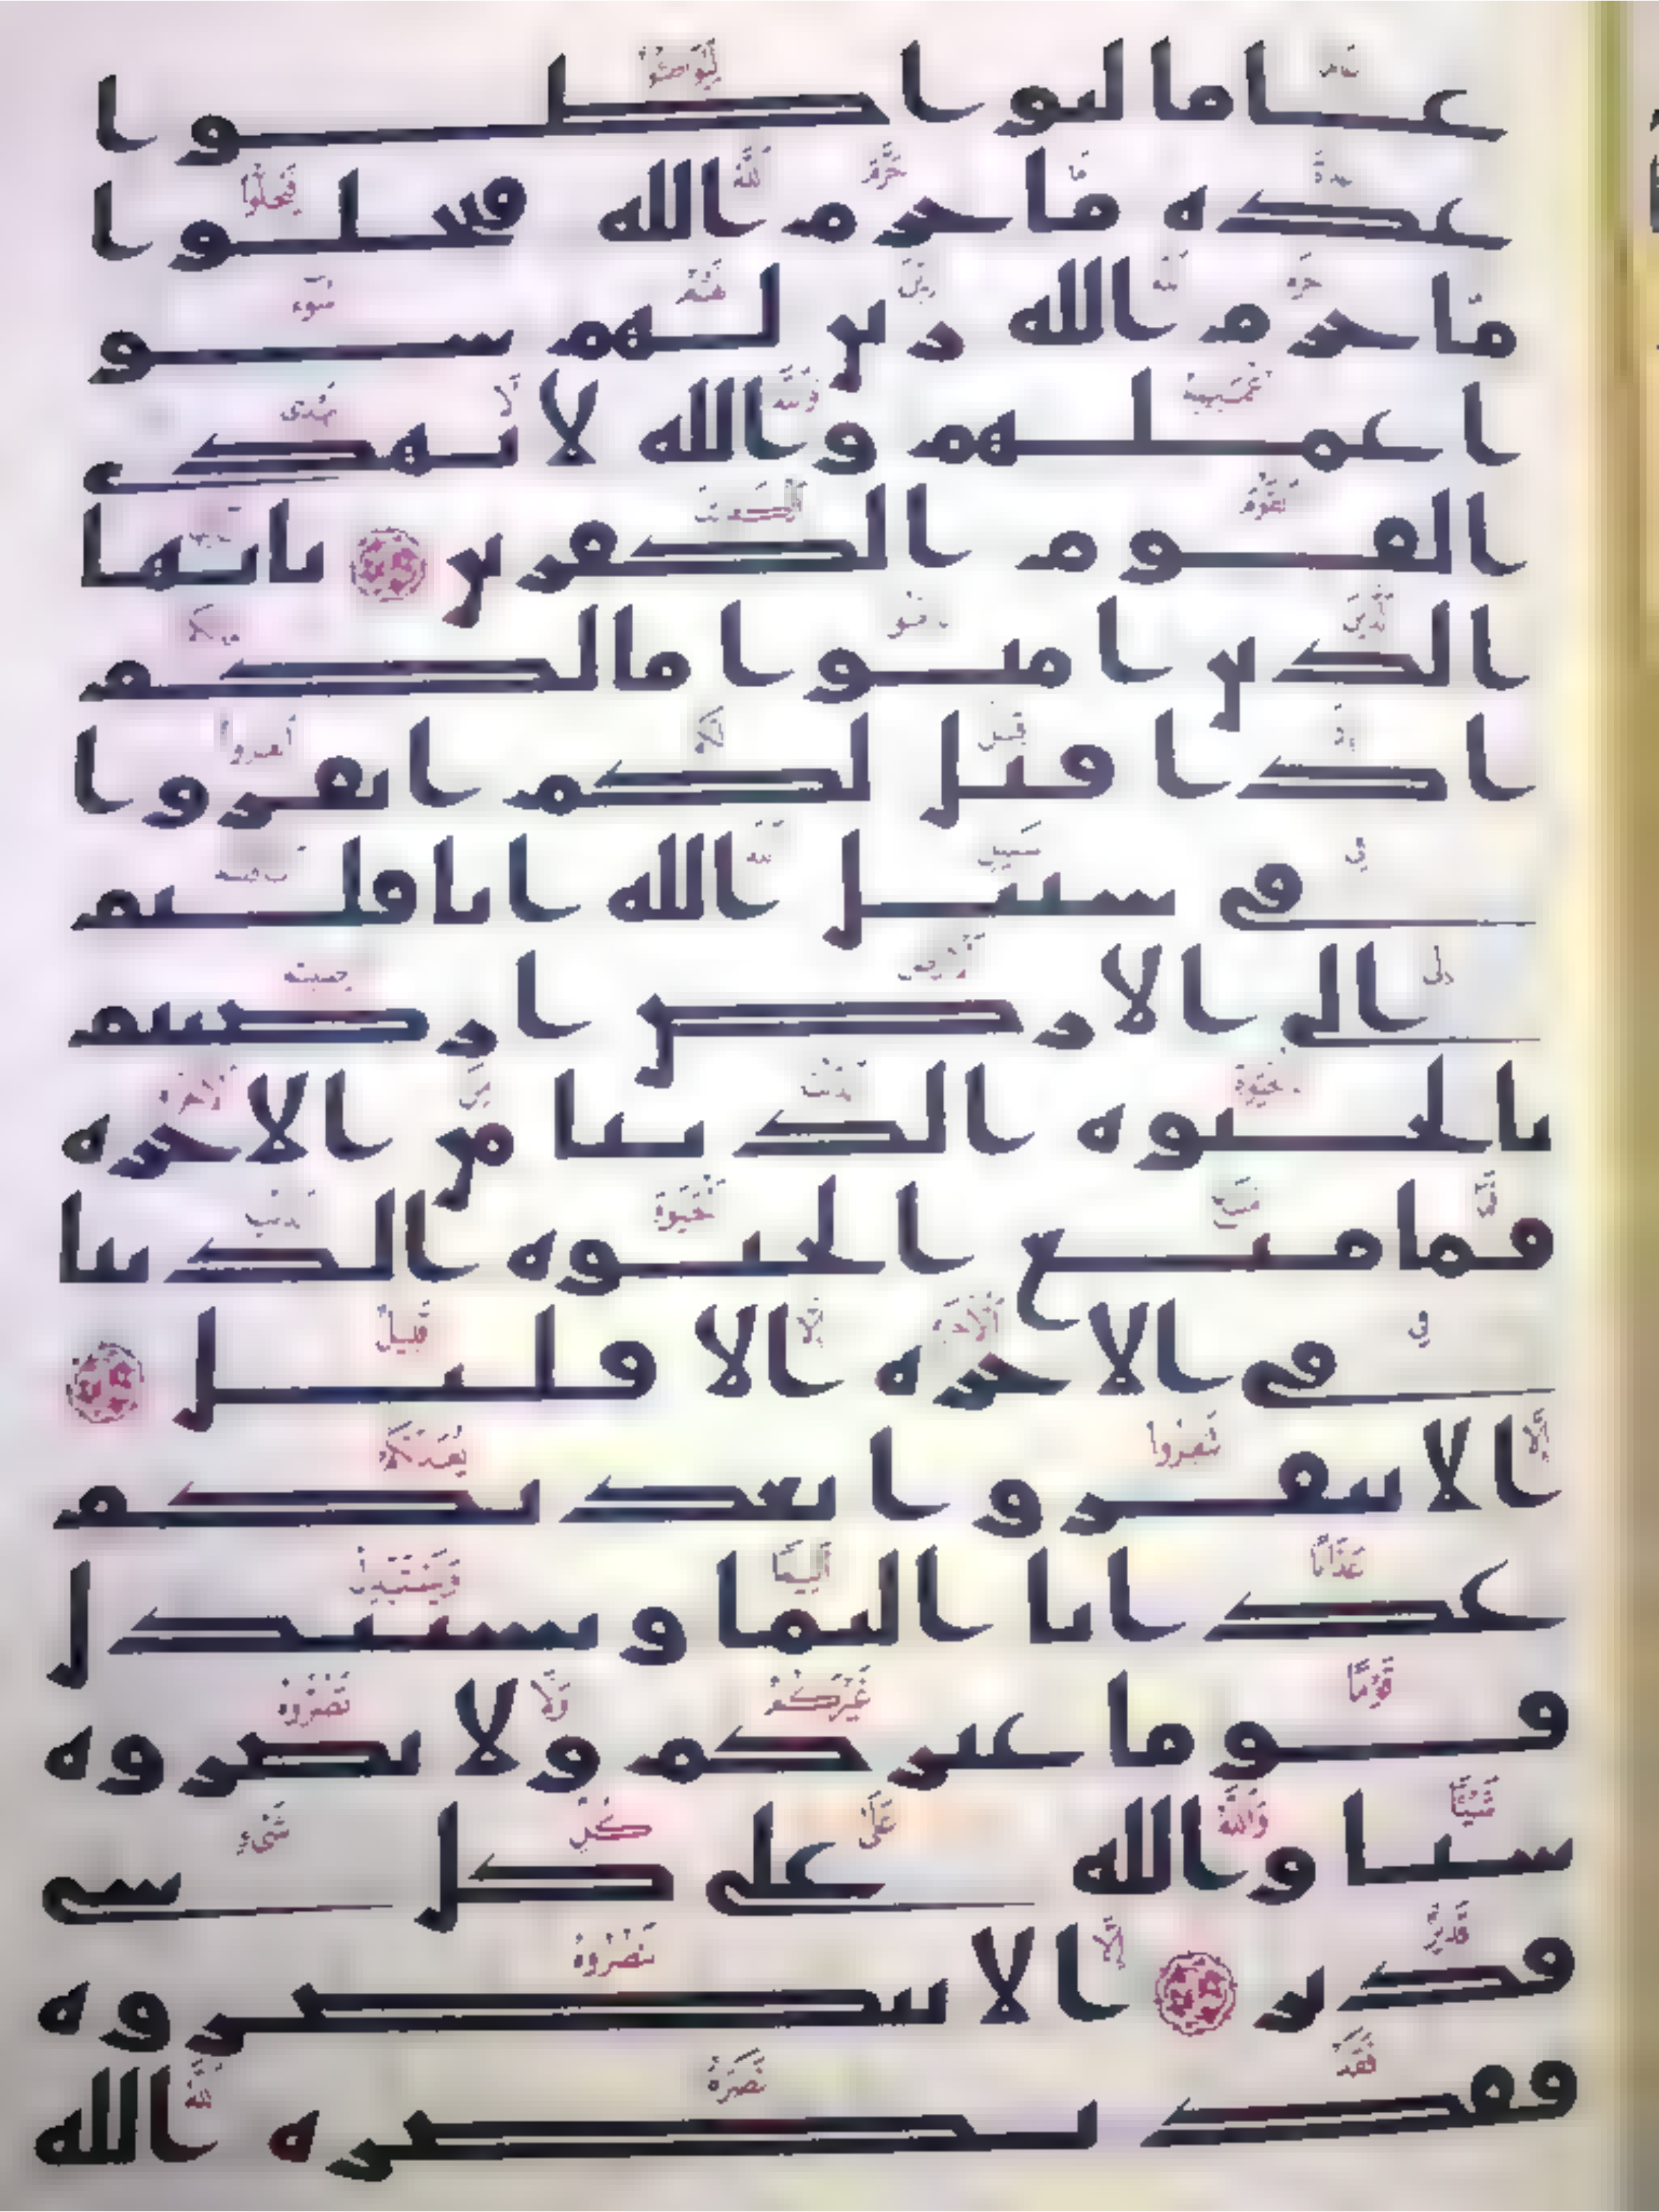 عاما ليواطوا
عده ما حرم الله فيحلوا
ما حرم الله زين لهم سو
اعملهم والله لا يهدى
القوم الكفرين يايها
الذين امنوا ما لكم
اذا قيل لكم انفروا
فى سبيل الله اثاقلتم
الى الارض ارضيتم
بالحيوه الدنيا من الاخره
فما متع الحيوه الدنيا
فى الاخره الا قليل
الا تنفروا يعذبكم
عذابا اليما ويستبدل
قوما غيركم ولا تضروه
شيا والله على كل شى
قدير الا تنصروه
فقد نصره الله